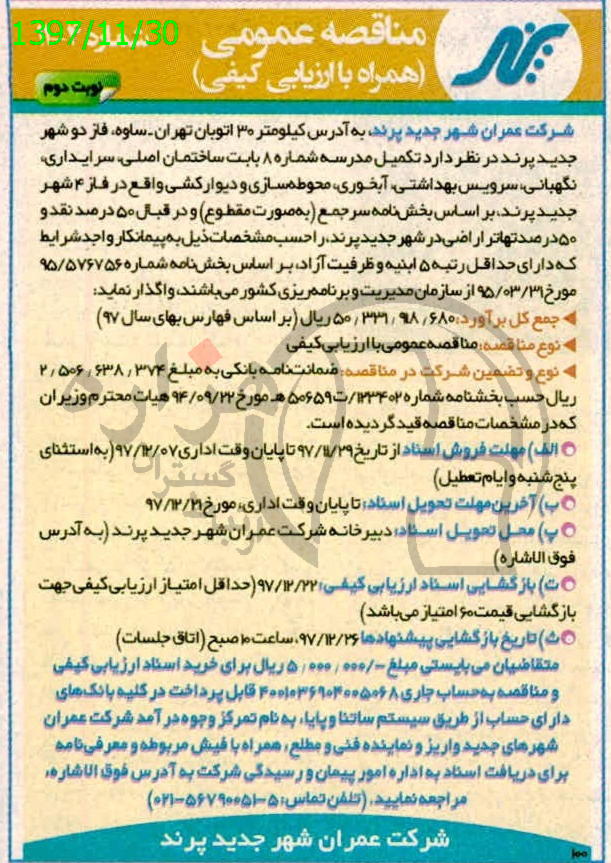 1397/11/30
مناقصه عمومی
(همراه با ارزیابی کیفی)
نوبت دوم
پرند
شرکت عمران شهر جدید پرند، به آدرس کیلومتر ۳۰ اتوبان تهران ـ ساوه، فاز دو شهر
جدید پرند در نظر دارد تکمیل مدرسه شماره ۸ بابت ساختمان اصلی، سرایداری،
نگهبانی، سرویس بهداشتی، آبخوری، محوطه‌سازی و دیوارکشی واقع در فاز ۴ شهر
جدید پرند، بر اساس بخش‌نامه سرجمع (به‌صورت مقطوع) و در قبال ۵۰ درصد نقد و
۵۰ درصد تهاتر اراضی در شهر جدید پرند، را حسب مشخصات ذیل به پیمانکار واجد شرایط
که دارای حداقل رتبه ۵ ابنیه و ظرفیت آزاد، بر اساس بخش‌نامه شماره ۹۵/۵۷۶۷۵۶
مورخ ۹۵/۰۳/۳۱ از سازمان مدیریت و برنامه‌ریزی کشور می‌باشند، واگذار نماید:
جمع کل برآورد: ۵۰٫۳۳۱٫۹۱۸٫۶۸۰ ریال (بر اساس فهارس بهای سال ۹۷)
نوع مناقصه: مناقصه عمومی با ارزیابی کیفی
نوع و تضمین شرکت در مناقصه: ضمانت‌نامه بانکی به مبلغ ۲٫۵۰۶٫۶۳۸٫۳۷۴
ریال حسب بخشنامه شماره ۱۲۳۴۰۲/ت ۵۰۶۵۹ هـ مورخ ۹۴/۰۹/۲۲ هیات محترم وزیران
که در مشخصات مناقصه قید گردیده است.
الف) مهلت فروش اسناد: از تاریخ ۹۷/۱۱/۲۹ تا پایان وقت اداری ۹۷/۱۲/۰۷ (به استثنای
پنج‌شنبه و ایام تعطیل)
ب) آخرین مهلت تحویل اسناد: تا پایان وقت اداری، مورخ ۹۷/۱۲/۲۱
پ) محل تحویل اسناد: دبیرخانه شرکت عمران شهر جدید پرند (به آدرس
فوق الاشاره)
ت) بازگشایی اسناد ارزیابی کیفی: ۹۷/۱۲/۲۲ (حداقل امتیاز ارزیابی کیفی جهت
بازگشایی قیمت ۶۰ امتیاز می‌باشد)
ث) تاریخ بازگشایی پیشنهادها: ۹۷/۱۲/۲۶، ساعت ۱۰ صبح (اتاق جلسات)
متقاضیان می‌بایستی مبلغ -/۵٫۰۰۰٫۰۰۰ ریال برای خرید اسناد ارزیابی کیفی
و مناقصه به‌حساب جاری ۴۰۰۱۰۳۶۹۰۴۰۰۵۰۶۸ قابل پرداخت در کلیه بانک‌های
دارای حساب از طریق سیستم ساتنا و پایا، به نام تمرکز وجوه درآمد شرکت عمران
شهرهای جدید واریز و نماینده فنی و مطلع، همراه با فیش مربوطه و معرفی‌نامه
برای دریافت اسناد به اداره امور پیمان و رسیدگی شرکت به آدرس فوق الاشاره،
مراجعه نمایید. (تلفن تماس: ۵-۵۶۷۹۰۰۵۱-۰۲۱)
شرکت عمران شهر جدید پرند
۱۰۰
هزاره
گستران